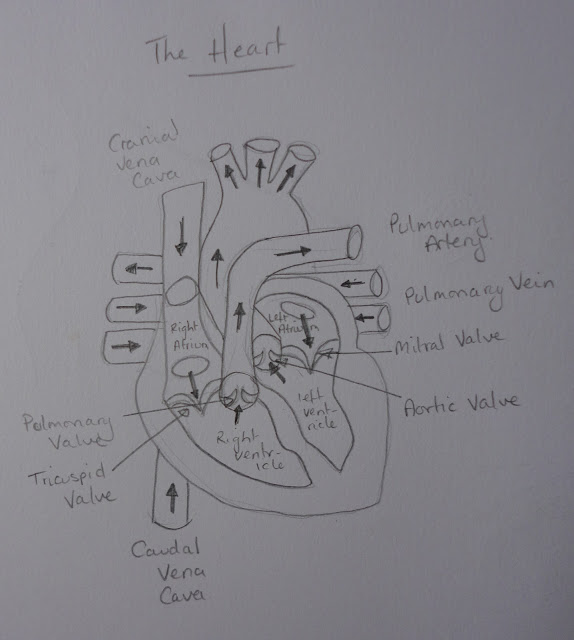 The Heart
Cranial
Vena
Cava
Pulmonary
Artery
Pulmonary Vein
Mitral Valve
Aortic Valve
Right
Atrium
Left
Atrium
Left
ventr-
icle
Right
ventr-
icle
Pulmonary
Valve
Tricuspid
Valve
Caudal
Vena
Cava